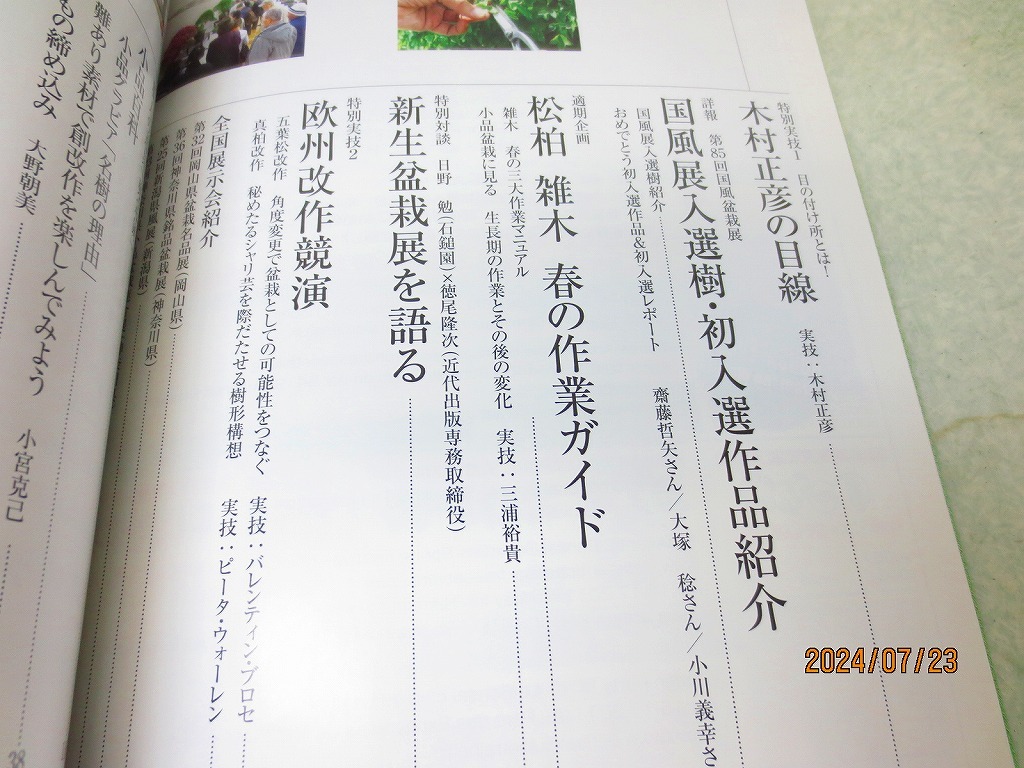 特別実技1 目の付け所とは!
木村正彦の目線
実技:木村正彦
詳報 第85回国風盆栽展
国風展入選樹・初入選作品紹介
国風展入選樹紹介
おめでとう初入選作品&初入選レポート
齋藤哲矢さん/大塚 稔さん/小川義幸さ
適期企画
松柏 雑木 春の作業ガイド
雑木 春の三大作業マニュアル
小品盆栽に見る 生長期の作業とその後の変化 実技:三浦裕貴
特別対談 日野 勉(石鎚園)×徳尾隆次(近代出版専務取締役)
新生盆栽展を語る
特別実技2
欧州改作競演
五葉松改作 角度変更で盆栽としての可能性をつなぐ 実技:バレンティン・ブロセ
真柏改作 秘めたるシャリ芸を際だたせる樹形構想 実技:ピータ・ウォーレン
全国展示会紹介
第32回岡山県盆栽名品展(岡山県)
第36回神奈川県銘品盆栽展(神奈川県)
小品グラビア「名樹の理由」
難あり素材で創改作を楽しんでみよう 小宮克己
もの締め込み 大野朝美
38
2024/07/23